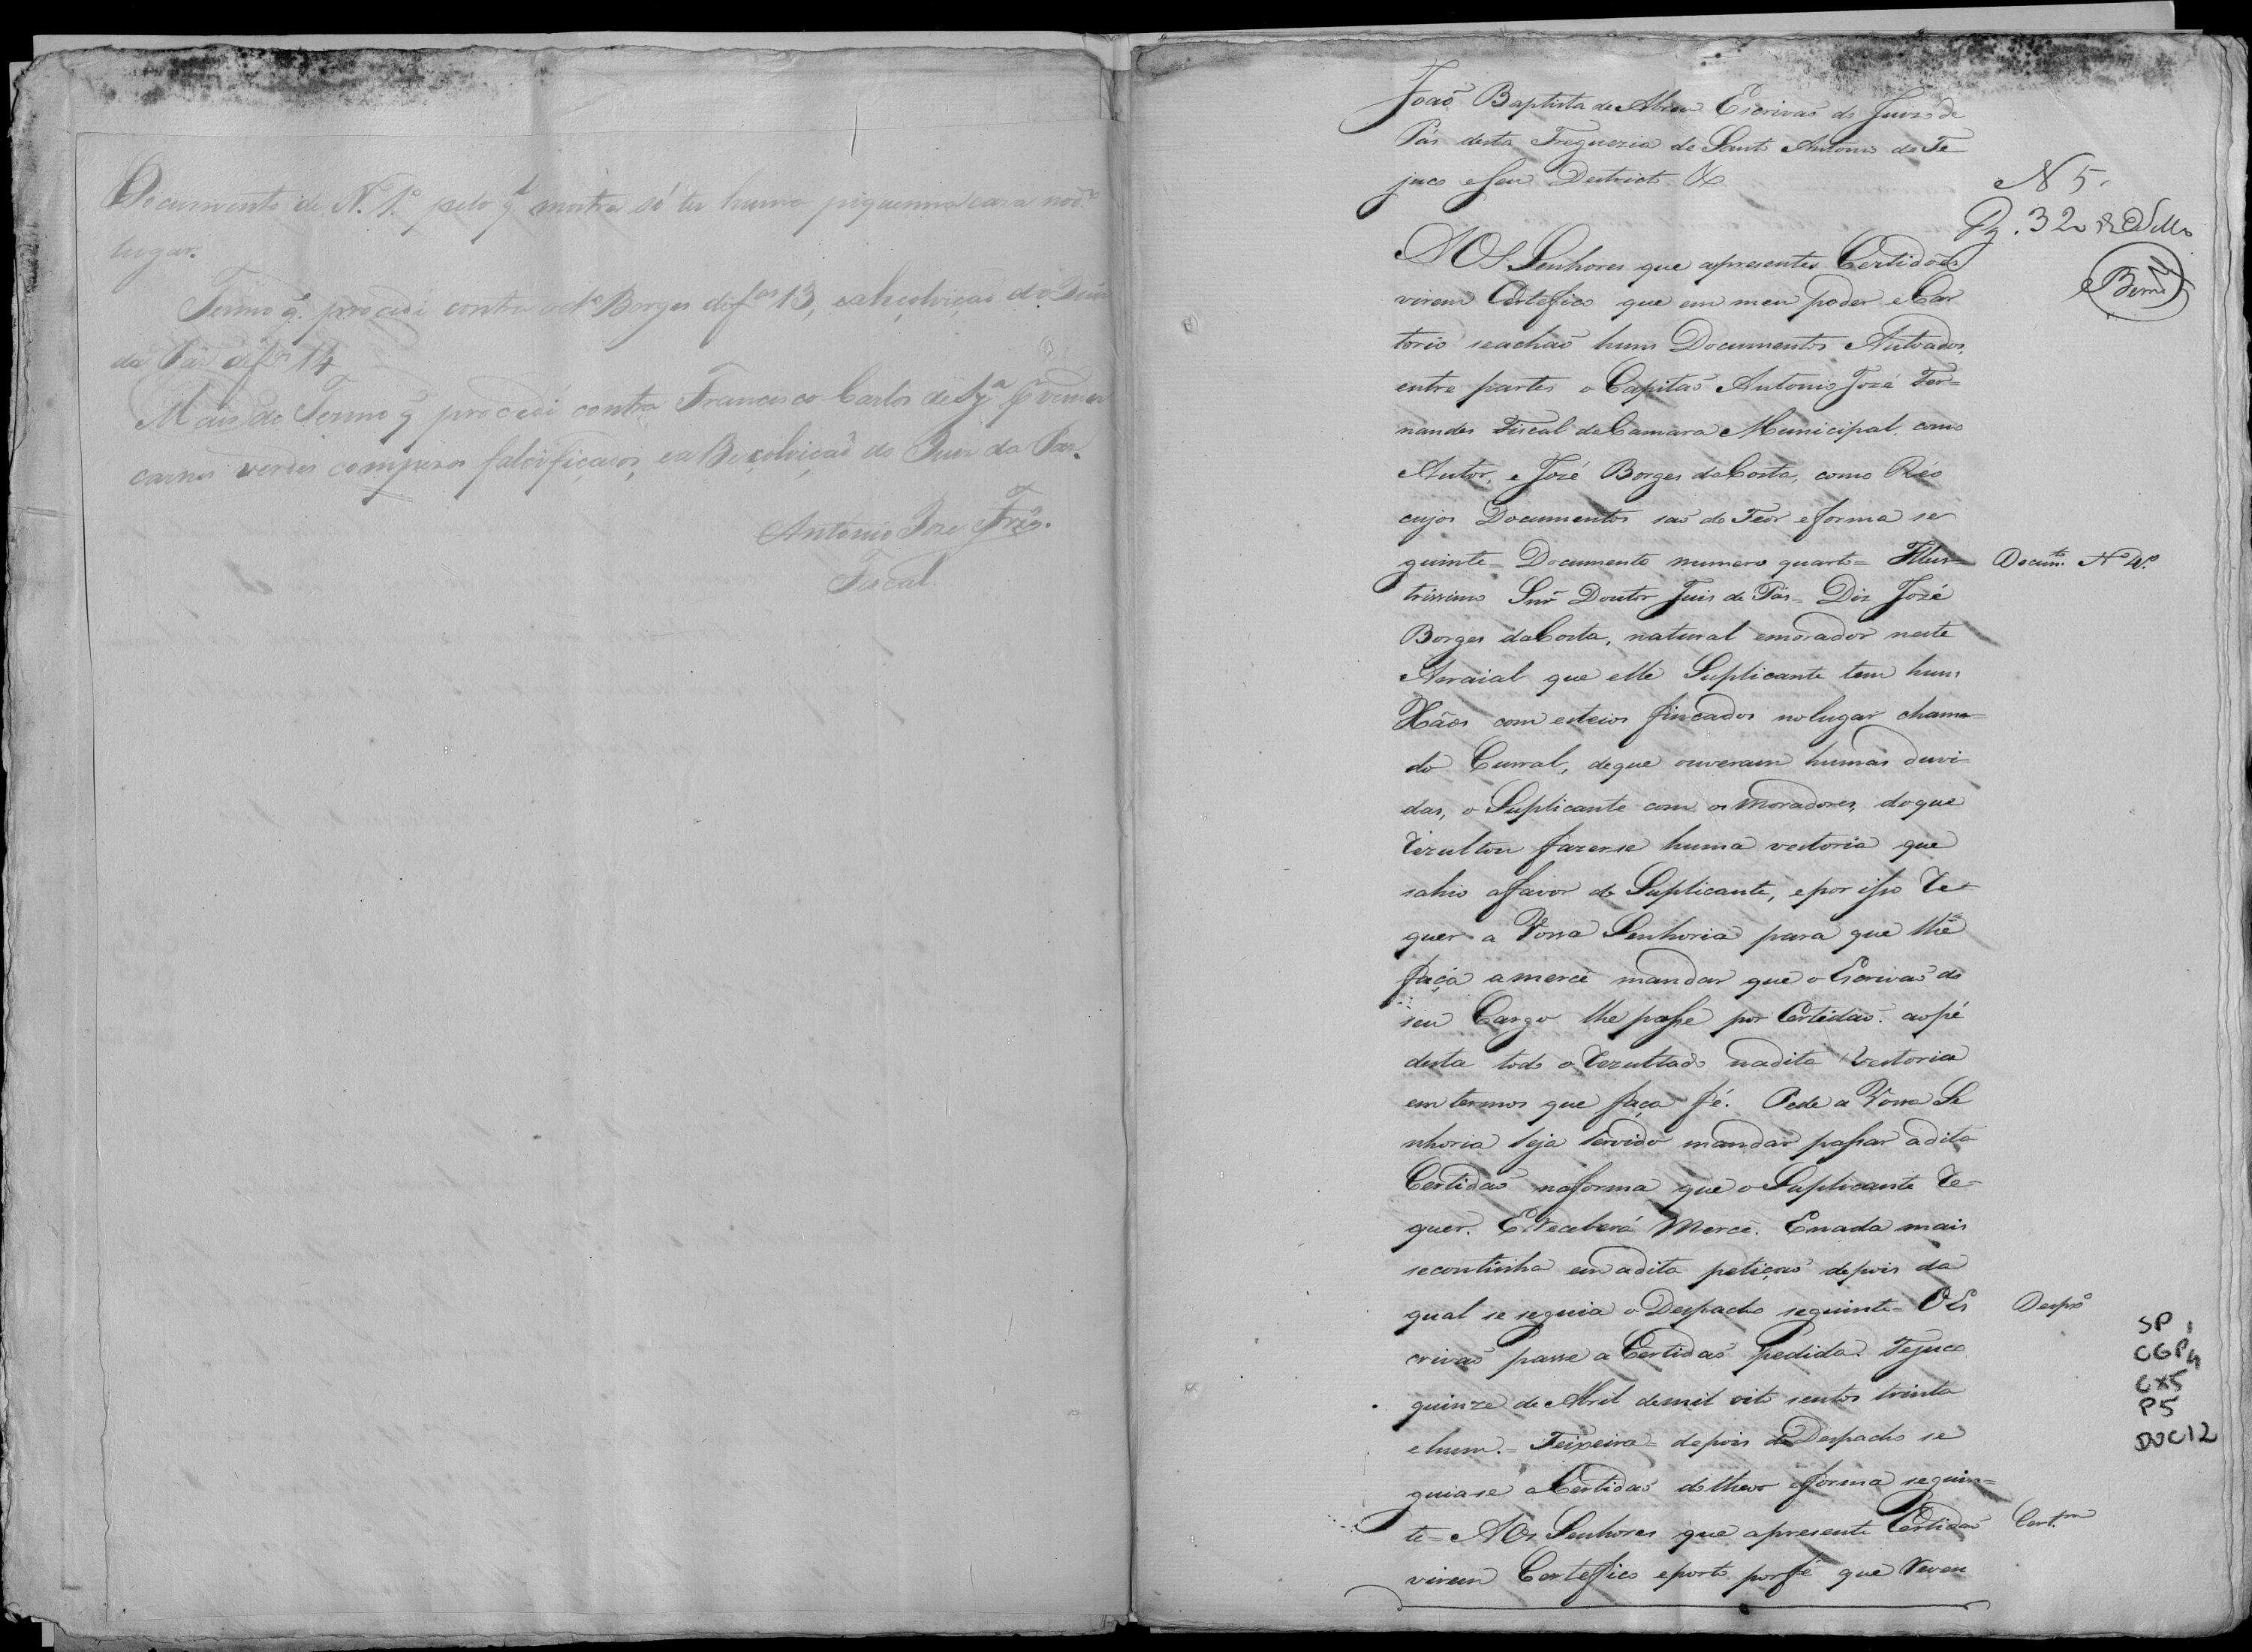 Documento de N. 1.º pelo q̃ mostra só ter huma piquenna caza no d.º
lugar.
Termo q̃ procedi contra o d.º Borges de f.as 13, e abeçolviçaõ do Juiz
da Páz de f.as 14
Mais do Termo q̃ procedi contra Francisco Carlos de
carnes verdes com pezos falcificados, e a Bezolviçaõ do Juiz da Paz.
Antonio Jose Frz̃.
Fiscal
Joaõ Baptista de Abreu Escrivaõ do Juizo de
Pás desta Freguezia de Santo Antonio do Te
juco e seu Destricto &
N 5.
Pg. 320 rs de Sello
AOS Senhores que apresente Certidaõ
virem Certefico que em meu poder e Car
torio seachaõ huns Documentos Autoados,
entre partes o Capitaõ Antonio Jozé Fer=
nandes Fiscal da Camara Municipal, como
Autor, e Jozé Borges da Costa, como Réo
cujos Documentos saõ do Teor e forma se
guinte = Documento numero quarto = Illus= Docum.to N.º 4.º
trissimo Snr̃ Doutor Juis de Pás = Diz Jozé
Borges da Costa, natural emorador neste
Arraial que elle Suplicante tem huns
Xãos com esteios fincados no lugar chama=
do Curral, deque ouveram humas duvi
das, o Suplicante com os moradores, do que
rezultou fazerse huma vestoria que
sahio afavor do Suplicante, e por isso re-
quer a Vossa Senhoria para que lhe
faça a mercê mandar que o Escrivaõ do
seu Cargo lhe passe por Certidaõ aopé
desta todo o rezultado nadita vestoria
em termos que faça fé. Pede a Vossa Se
nhoria seja servido mandar passar adita
Certidaõ na forma que o Suplicante re-
quer. E Receberá Mercê. Enada mais
secontinha em adita petiçaõ depois da
qual se seguia o Despacho seguinte = O Es Desp.º
crivaõ passe a Certidaõ pedida. Tejuco
quinze de Abril de mil oito sentos trinta
e hum. = Teixeira = depois do Despacho se
guiase a Certidaõ do theor e forma seguin=
te = AOs Senhores que apresente Certidaõ Cert.m
virem Certefico eporto por fé que reven
SP 1
CGP4
CX5
P5
DOC12